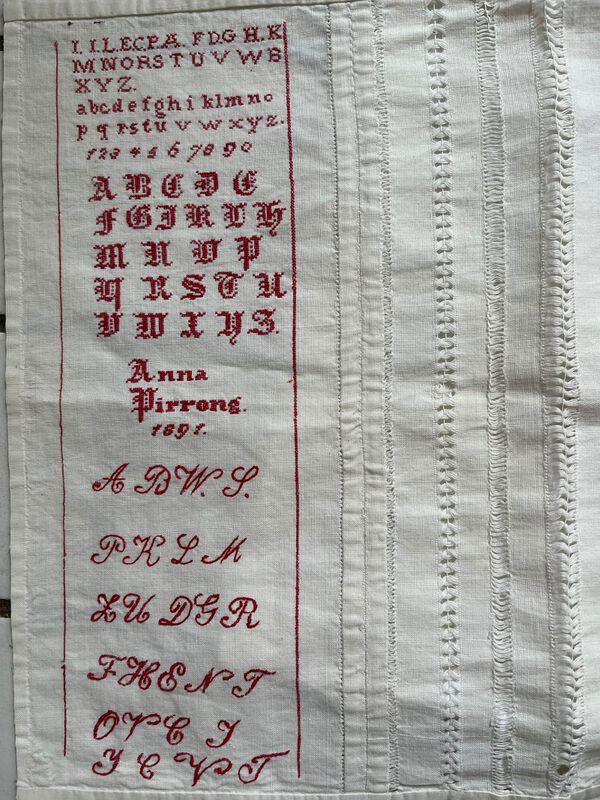 I. I.L.E.C.P.A. F D G H.K
M N O R S T U V W B
X Y Z.
a b c d e f g h i k l m n o
p q r s t u v w x y z.
1 2 3 4 5 6 7 8 9 0
A B C D E
F G I K L H
M N O P
Q R S T U
V W X Y Z.
Anna
Pirrong.
1891.
A B W. S.
P K L M
Z U D G R
F H E N T
O V C I
Y C V T